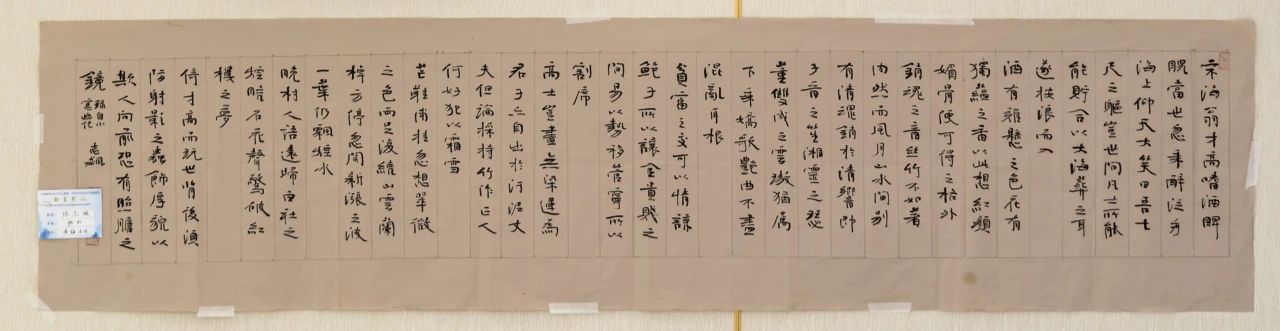 宋海翁才高嗜酒睥
睨當世忽乘醉泛舟
海上仰天大笑曰吾七
尺之軀豈世間凡土所能
能貯合以大海葬之耳
遂按浪而入
酒有難懸之色花有
獨蘊之香以此想紅顏
媚骨便可得之格外
銷魂之音絲竹不如著
肉然而風月山水間別
有清魂銷於清響即
子晉之笙湘靈之瑟
董雙成之雲璈猶屬
下乘嬌歌艷曲不盡
混亂耳根
貧富之交可以情諒
鮑子所以讓金貴賤之
間易以勢移管寧所以
割席
高士豈盡無染蓮為
君子亦自出於汙泥丈
夫但論操持竹作正人
何妨犯以霜雪
芒鞋甫挂忽想翠微
之色兩足復繞山雲蘭
棹方停忽聞新漲之波
一葉仍飄煙水
晚村人語遠歸白社之
煙曉市花聲驚破紅
樓之夢
恃才高而玩世背後須
防射影之蟲飾厚貌以
欺人面前恐有照膽之
鏡
錄自小
窗幽記